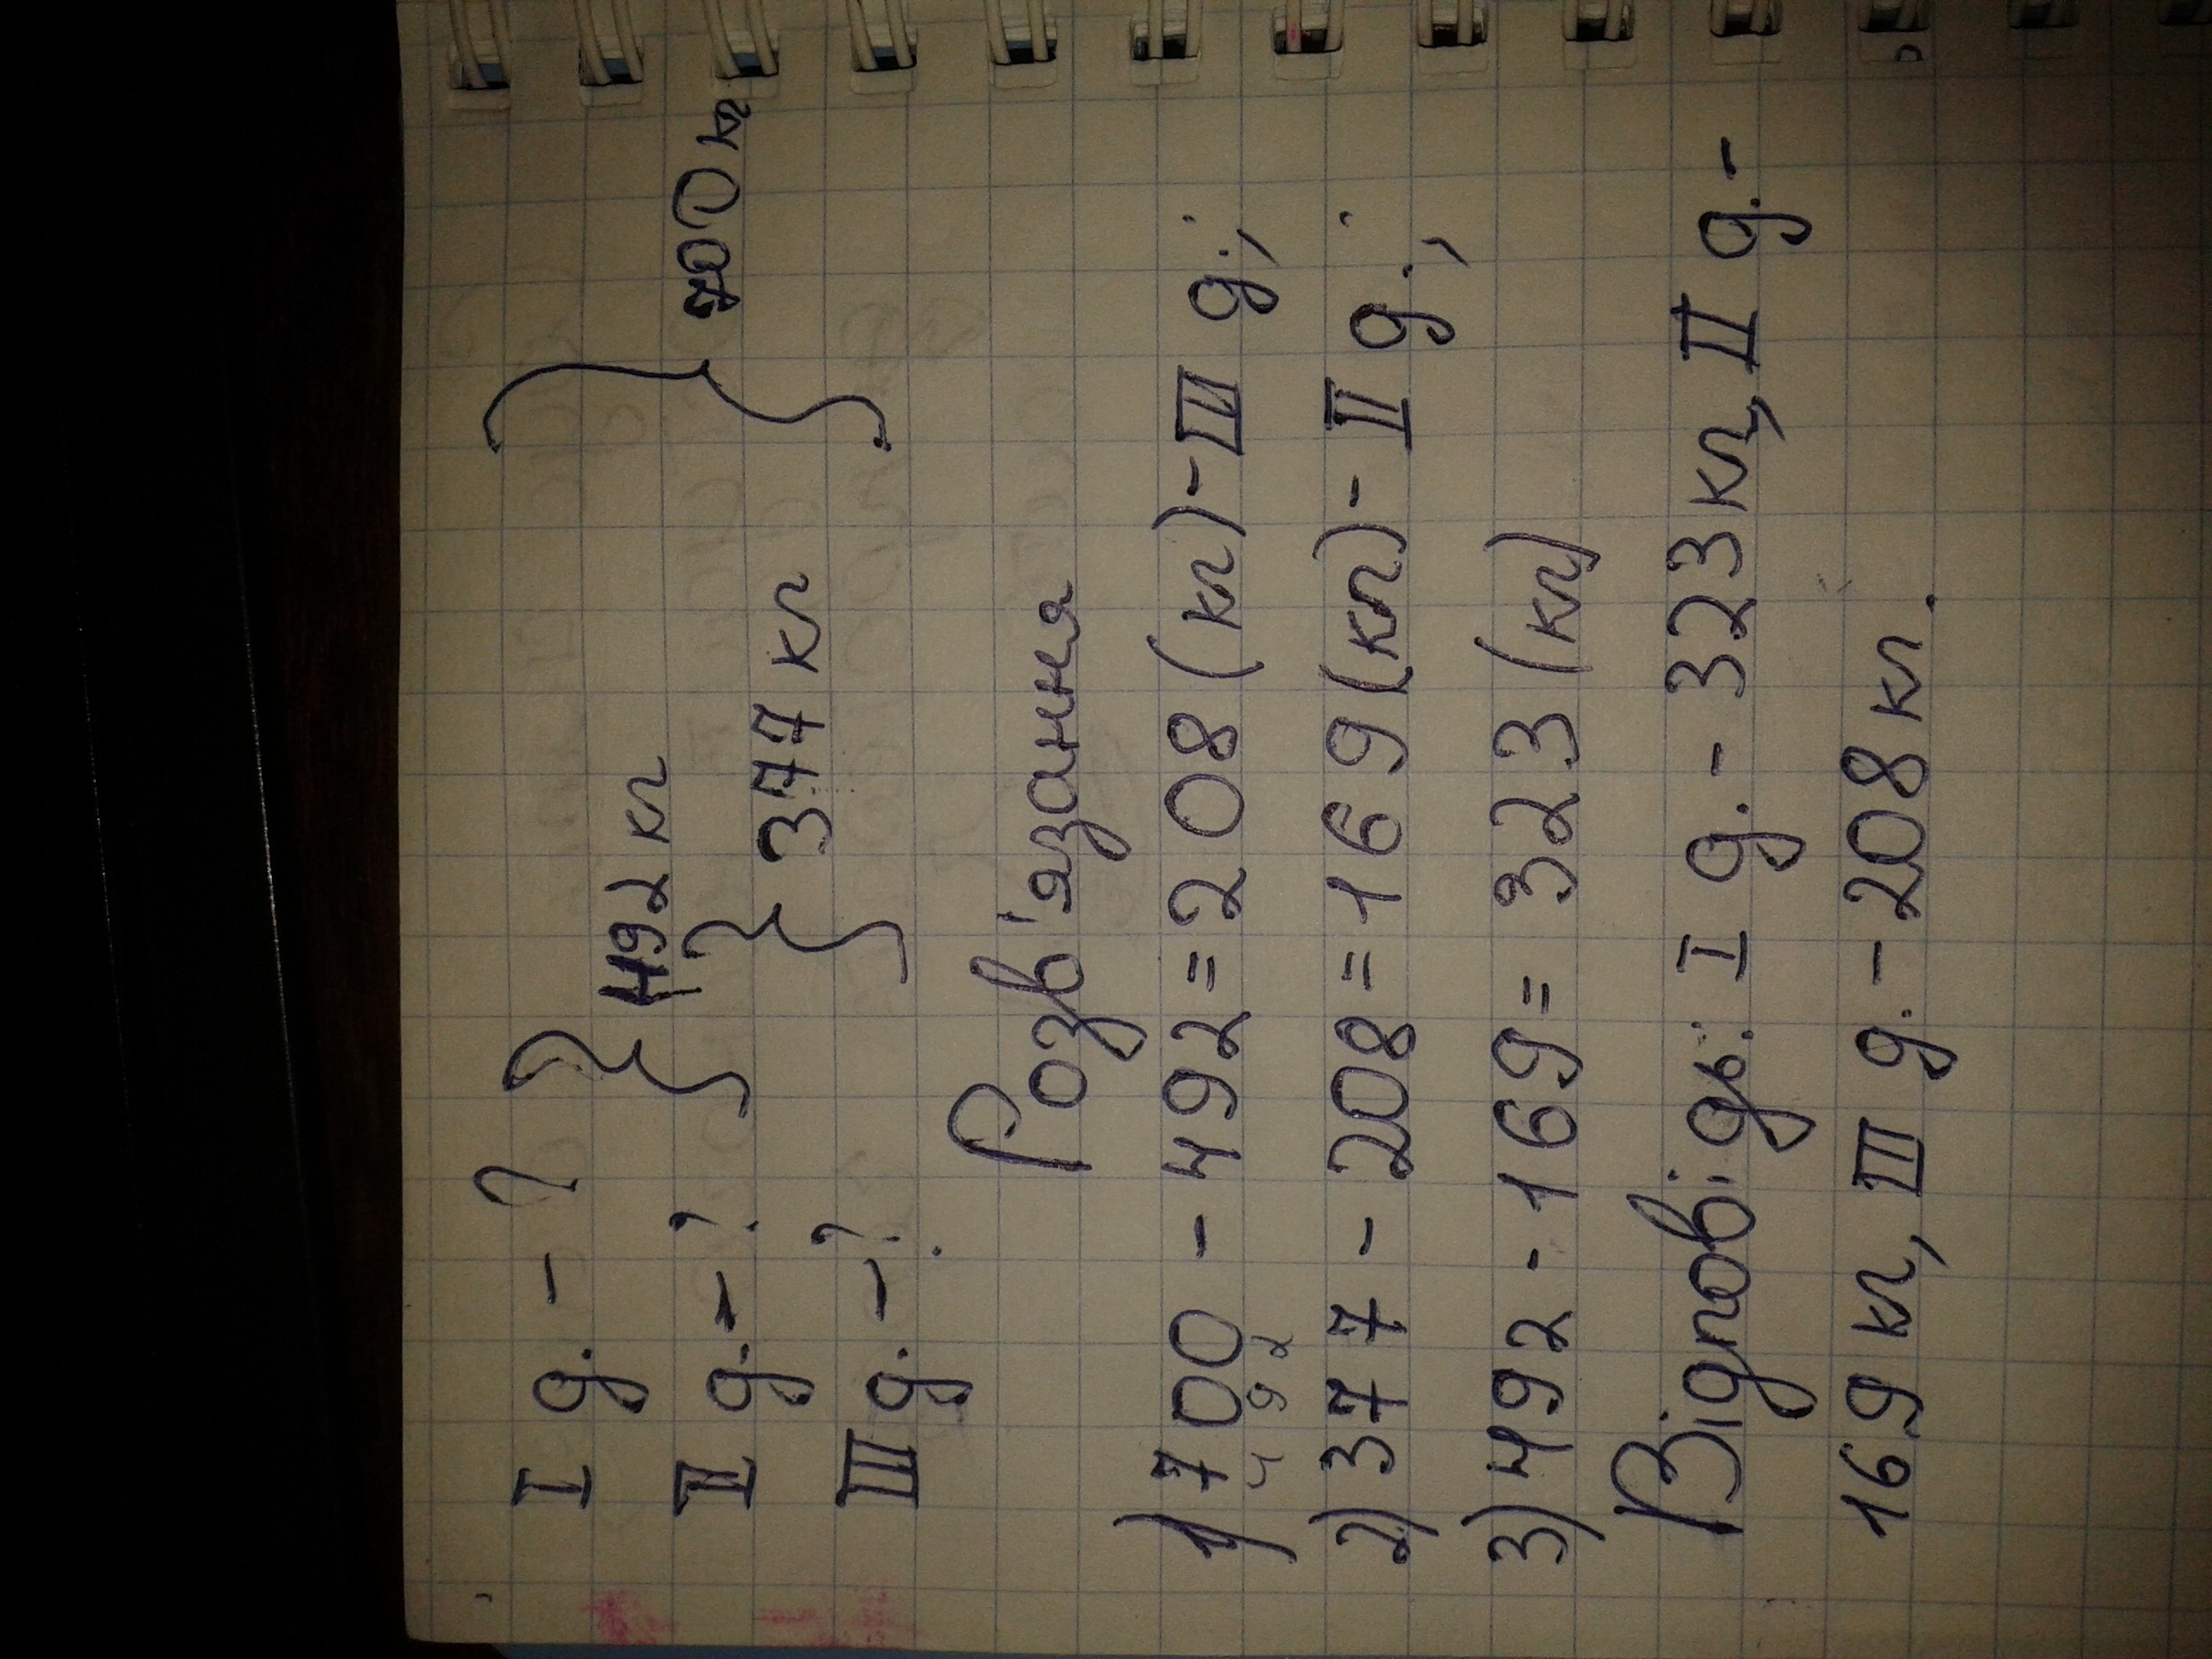 I д. - ?
492 кг
II д. - ?
700 кг
377 кг
III д. - ?
Розв'язання
1) 700 - 492 = 208 (кг) - III д.;
492
2) 377 - 208 = 169 (кг) - II д.;
3) 492 - 169 = 323 (кг)
Відповідь: I д. - 323 кг, II д. -
169 кг, III д. - 208 кг.